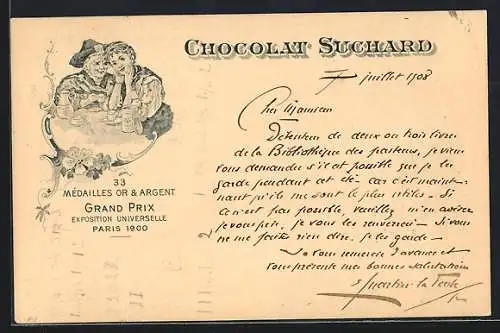 CHOCOLAT SUCHARD
7 juillet 1908
Cher Monsieur
Détenteur de deux ou trois livres
de la Bibliothèque des pasteurs, je viens
vous demander s'il est possible que je les
garde pendant cet été car c'est mainte-
nant qu'ils me sont le plus utiles. Si
ce n'est pas possible, veuillez m'en aviser
je vous prie, je vous les renverrai. Si vous
ne me faites rien dire, je les garde.
Je vous remercie d'avance et
vous présente mes bonnes salutations
33
MÉDAILLES OR & ARGENT
GRAND PRIX
EXPOSITION UNIVERSELLE
PARIS 1900